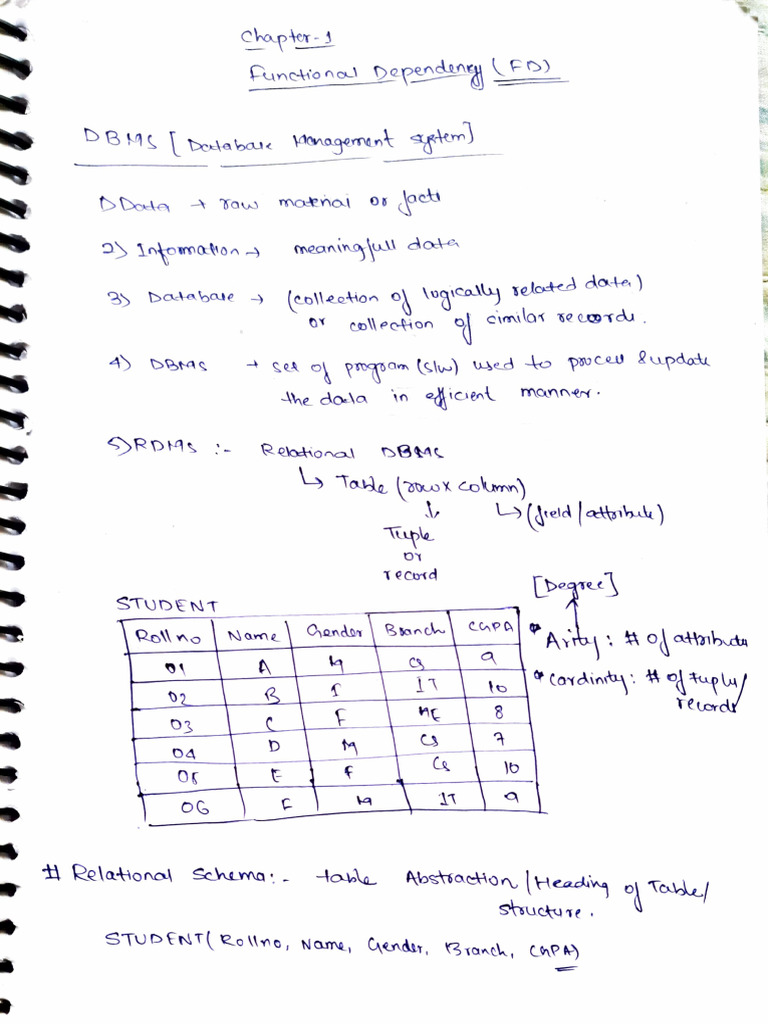 Chapter-1
Functional Dependency (FD)
DBMS [Database Management system]
1) Data → raw material or facts
2) Information → meaningfull data
3) Database → (collection of logically related data)
or collection of cimilar records.
4) DBMS → set of program (s/w) used to process & update
the data in efficient manner.
5) RDMS :- Relational DBMS
↳ Table (row x column)
↳ (field/attribute)
Tuple
or
record
[Degree]
STUDENT
Rollno Name Gender Branch CGPA
* Arity: # of attribute
01 A M CS 9
* Cardinity: # of tuples/
records
02 B IT 10
03 C F ME 8
04 D M CS 7
05 E F CS 10
06 F M IT 9
# Relational Schema:- table Abstraction/Heading of Table/
structure.
STUDENT(Rollno, Name, Gender, Branch, CGPA)